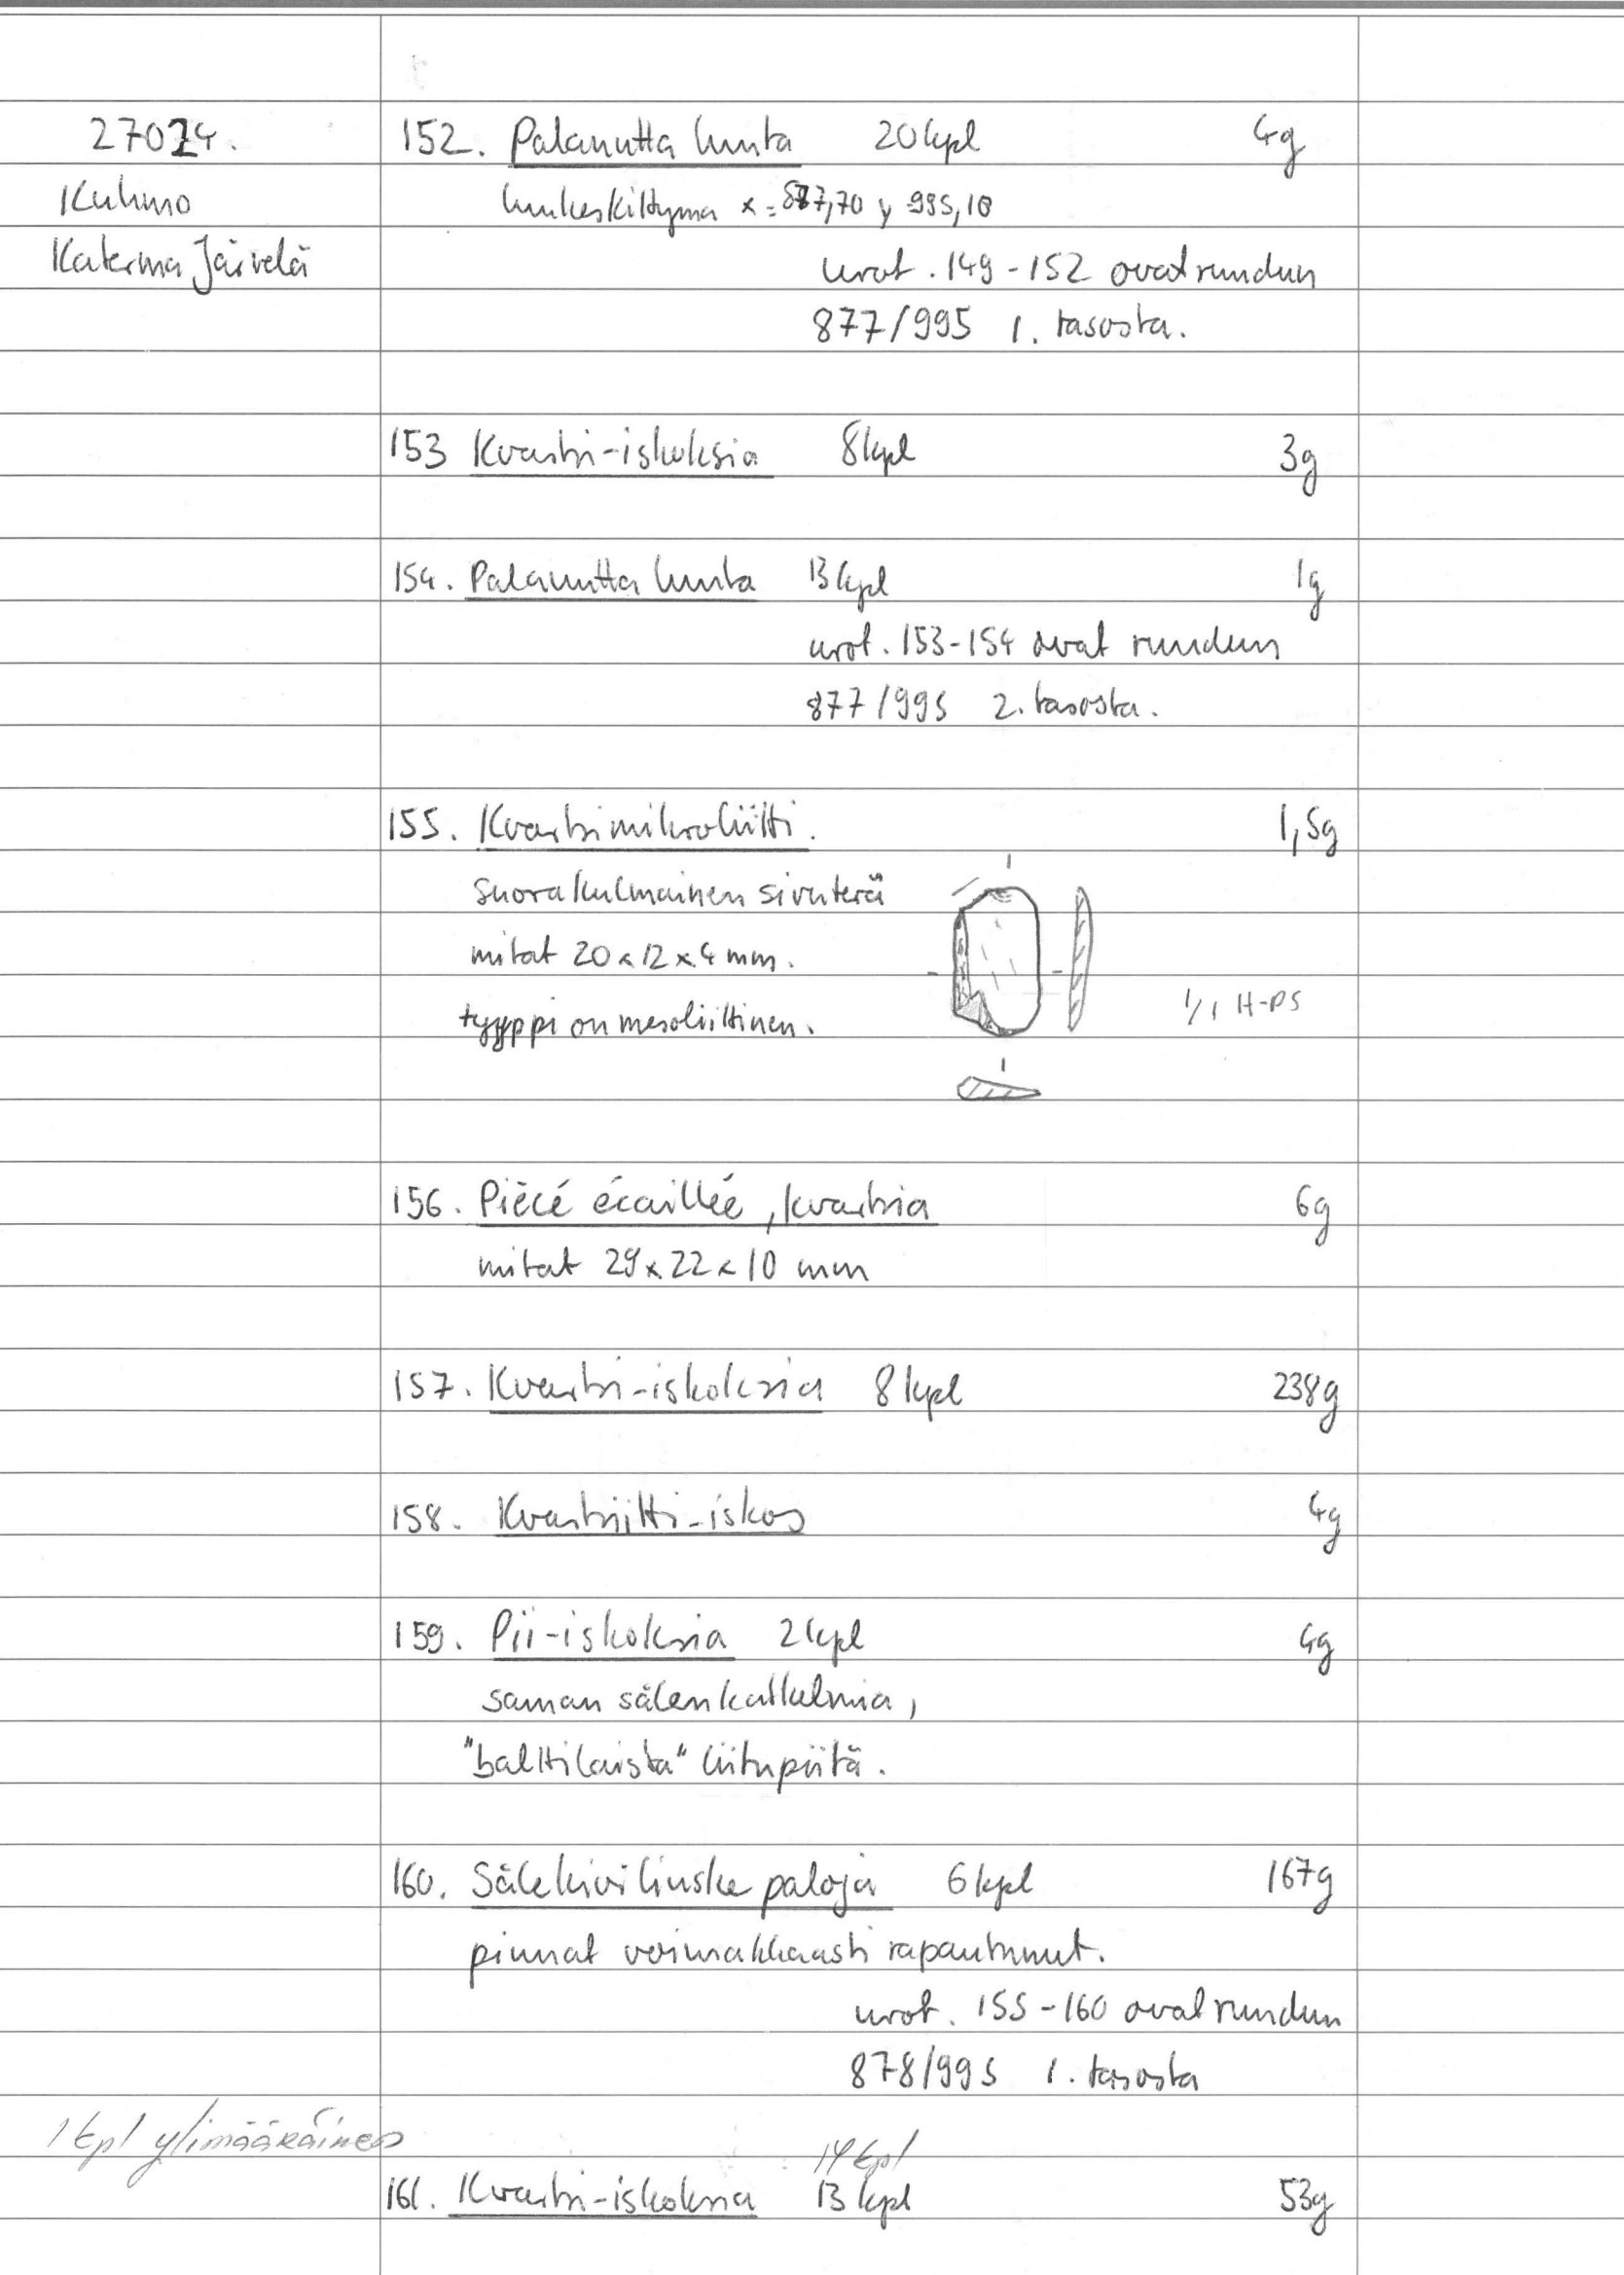 27024. 152. Palanutta luuta 20 kpl 4g
Kuhmo luukeskittymä x = 877,70 y 995,10
Katerma Järvelä urot. 149-152 ovat ruudun
877/995 1. tasosta.
153 Kvartsi-iskoksia 8 kpl 3g
154. Palanutta luuta 13 kpl 1g
urot. 153-154 ovat ruudun
877/995 2. tasosta.
155. Kvartsimikroliitti. 1,5g
suorakulmainen sivuterä
mitat 20 x 12 x 4 mm.
tyyppi on mesoliittinen.
1/1 H-PS
156. Piècé écaillée, kvartsia 6g
mitat 29 x 22 x 10 mm
157. Kvartsi-iskoksia 8 kpl 238g
158. Kvartsiitti-iskos 4g
159. Pii-iskoksia 2 kpl 4g
saman säleen katkelmia,
"balttilaista" liitupiitä.
160. Sälekiviliuske paloja 6 kpl 167g
pinnat voimakkaasti rapautunut.
urot. 155-160 ovat ruudun
878/995 1. tasosta
1 kpl ylimääräinen
14 kpl
161. Kvartsi-iskoksia 13 kpl 53g